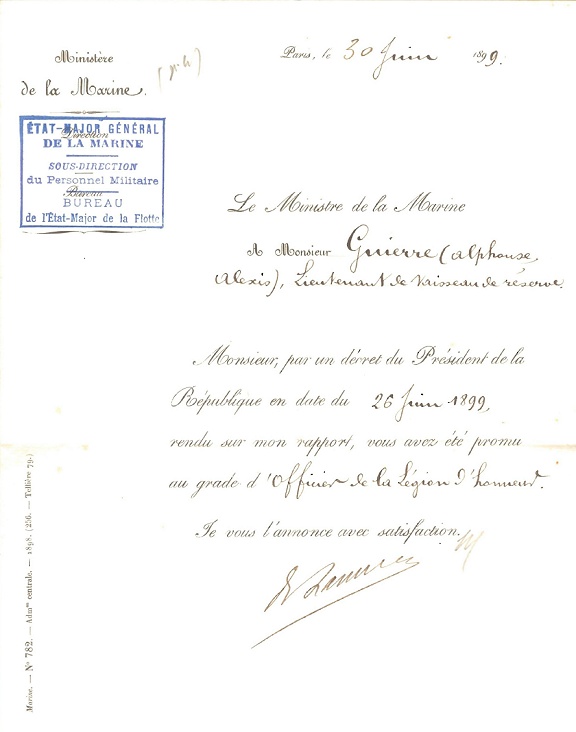 Ministère
de la Marine.
Paris, le 30 Juin 1899.
ÉTAT-MAJOR GÉNÉRAL
Direction
DE LA MARINE
SOUS-DIRECTION
du Personnel Militaire
Bureau
BUREAU
de l'État-Major de la Flotte
Le Ministre de la Marine
A Monsieur Guierre (Alphonse,
Alexis), Lieutenant de vaisseau de réserve.
Monsieur, par un décret du Président de la
République en date du 26 Juin 1899,
rendu sur mon rapport, vous avez été promu
au grade d'Officier de la Légion d'honneur.
Je vous l'annonce avec satisfaction.
Marine. — Nº 782. — Admon centrale. — 1898. (256. — Tellière 79.)